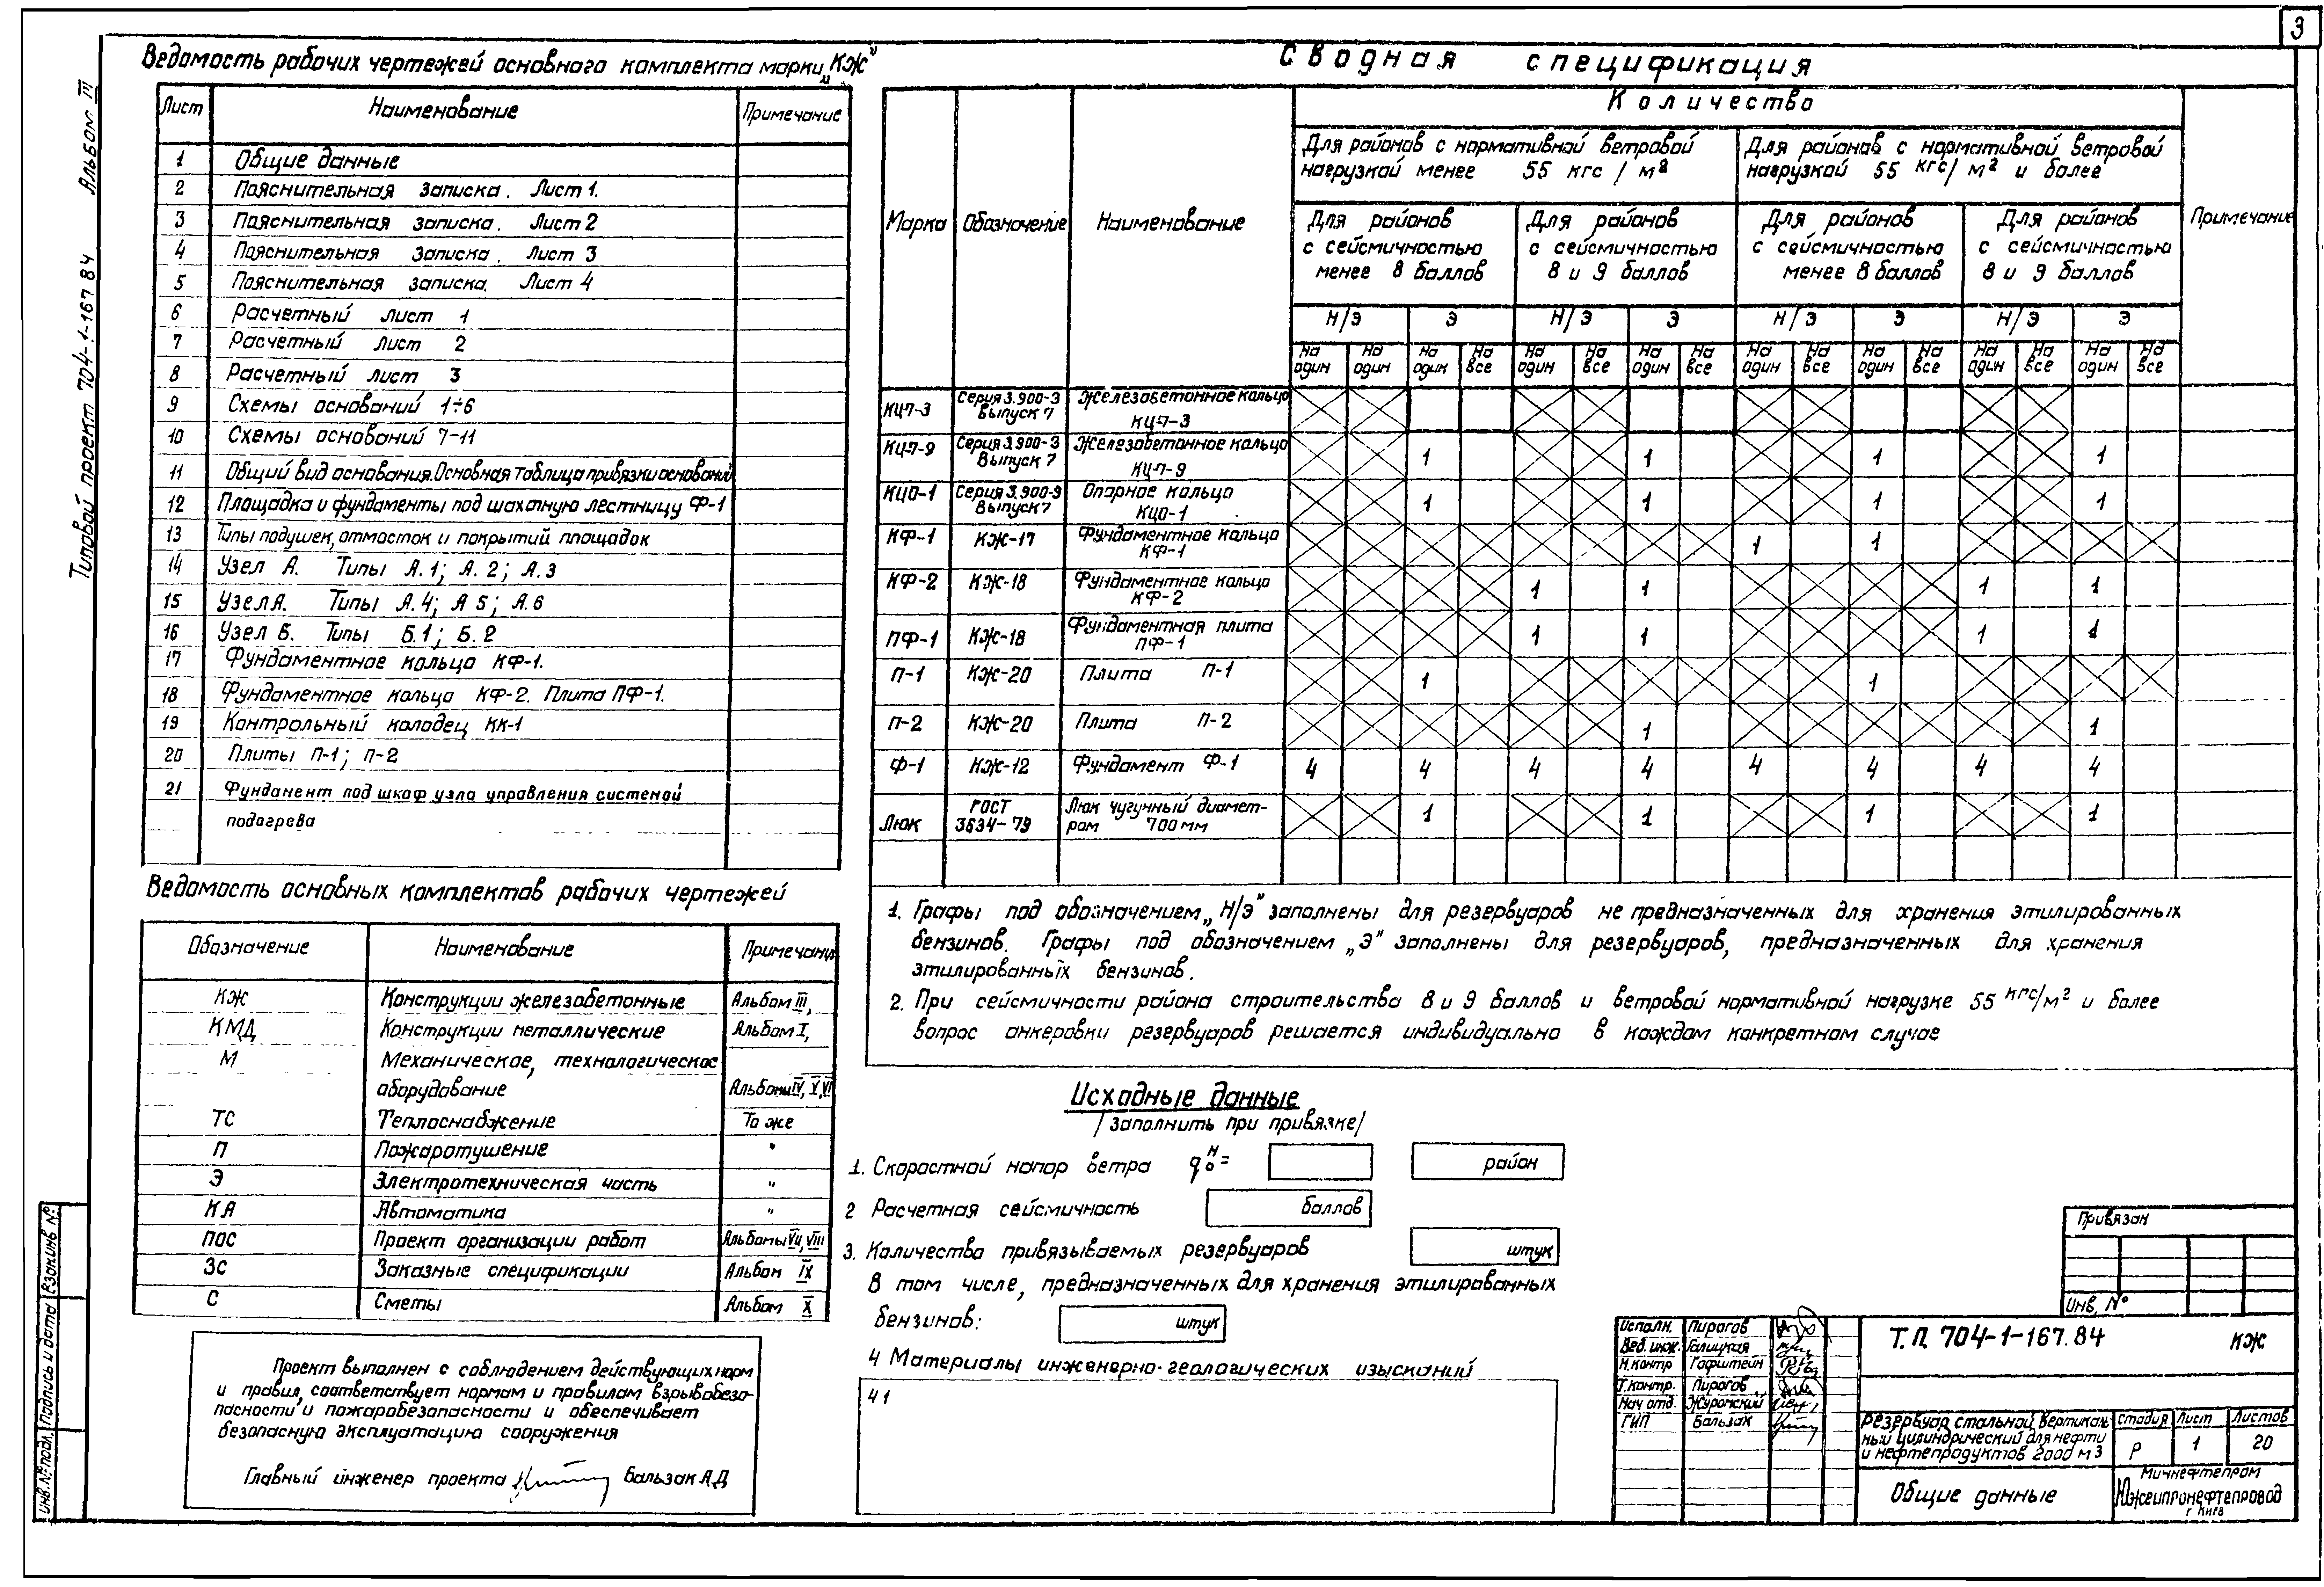 3
Типовой проект 704-1-167 84 Альбом III
Ведомость рабочих чертежей основного комплекта марки „КЖ"
Лист Наименование Примечание
1 Общие данные
2 Пояснительная записка. Лист 1.
3 Пояснительная записка. Лист 2
4 Пояснительная записка. Лист 3
5 Пояснительная записка. Лист 4
6 Расчетный лист 1
7 Расчетный лист 2
8 Расчетный лист 3
9 Схемы оснований 1÷6
10 Схемы оснований 7-11
11 Общий вид основания. Основная таблица привязки оснований
12 Площадка и фундаменты под шахтную лестницу Ф-1
13 Типы подушек, отмосток и покрытий площадок
14 Узел А. Типы А.1; А.2; А.3
15 Узел А. Типы А.4; А 5; А.6
16 Узел Б. Типы Б.1; Б.2
17 Фундаментное кольцо КФ-1.
18 Фундаментное кольцо КФ-2. Плита ПФ-1.
19 Контрольный колодец КК-1
20 Плиты П-1; П-2
21 Фундамент под шкаф узла управления системой
подогрева
Ведомость основных комплектов рабочих чертежей
Обозначение Наименование Примечание
КЖ Конструкции железобетонные Альбом III,
КМД Конструкции металлические Альбом I,
М Механическое, технологическое
оборудование Альбомы IV, V, VI
ТС Теплоснабжение То же
П Пожаротушение "
Э Электротехническая часть "
КА Автоматика "
ПОС Проект организации работ Альбомы VII, VIII
ЗС Заказные спецификации Альбом IX
С Сметы Альбом X
Проект выполнен с соблюдением действующих норм
и правил, соответствует нормам и правилам взрывобезо-
пасности и пожаробезопасности и обеспечивает
безопасную эксплуатацию сооружения
Главный инженер проекта Бальзак А.Д
Сводная спецификация
Марка Обозначение Наименование Количество Примечание
Для районов с нормативной ветровой
нагрузкой менее 55 кгс/м²
Для районов с нормативной ветровой
нагрузкой 55 кгс/м² и более
Для районов
с сейсмичностью
менее 8 баллов
Для районов
с сейсмичностью
8 и 9 баллов
Для районов
с сейсмичностью
менее 8 баллов
Для районов
с сейсмичностью
8 и 9 баллов
Н/Э Э Н/Э Э Н/Э Э Н/Э Э
На На На На На На На На На На На На На На На На
один один один все один все один все один все один все один все один все
КЦ-7-3 Серия 3.900-3 Железобетонное кольцо
Выпуск 7 КЦ-7-3
КЦ-7-9 Серия 3.900-3 Железобетонное кольцо
Выпуск 7 КЦ-7-9 1 1 1 1
КЦО-1 Серия 3.900-9 Опорное кольцо
Выпуск 7 КЦО-1 1 1 1 1
КФ-1 КЖ-17 Фундаментное кольцо
КФ-1 1 1
КФ-2 КЖ-18 Фундаментное кольцо
КФ-2 1 1 1 1
ПФ-1 КЖ-18 Фундаментная плита
ПФ-1 1 1 1 1
П-1 КЖ-20 Плита П-1 1 1
П-2 КЖ-20 Плита П-2 1 1
Ф-1 КЖ-12 Фундамент Ф-1 4 4 4 4 4 4 4 4
Люк ГОСТ 3634-79 Люк чугунный диамет-
ром 700 мм 1 1 1 1
1. Графы под обозначением „Н/Э" заполнены для резервуаров не предназначенных для хранения этилированных
бензинов. Графы под обозначением „Э" заполнены для резервуаров, предназначенных для хранения
этилированных бензинов.
2. При сейсмичности района строительства 8 и 9 баллов и ветровой нормативной нагрузке 55 кгс/м² и более
вопрос анкеровки резервуаров решается индивидуально в каждом конкретном случае
Исходные данные
/заполнить при привязке/
1. Скоростной напор ветра q₀ᴴ= район
2 Расчетная сейсмичность баллов
3. Количество привязываемых резервуаров штук
В том числе, предназначенных для хранения этилированных
бензинов: штук
4 Материалы инженерно-геологических изысканий
4 1
Привязан
Инв. №
Исполн. Пирогов
Вед. инж. Галицкая
Н.контр Гофштейн
Т.контр. Пирогов
Нач отд. Журонский
ГИП Бальзак
Т.П. 704-1-167.84 КЖ
Резервуар стальной вертикаль-
ный цилиндрический для нефти
и нефтепродуктов 2000 м3
Стадия Лист Листов
Р 1 20
Общие данные
Миннефтепром
Южгипронефтепровод
г Киев
Инв. № подл. Подпись и дата Взам инв №